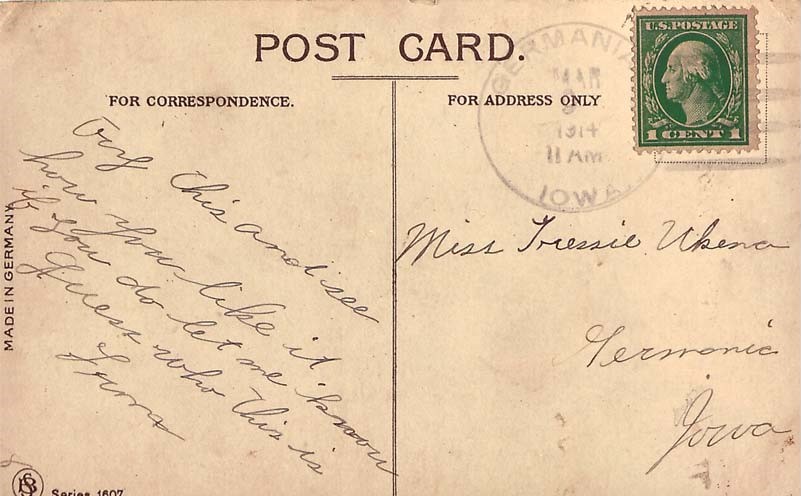 POST CARD.
FOR CORRESPONDENCE.
FOR ADDRESS ONLY
U.S. POSTAGE
1 CENT 1
GERMANIA
MAR
1914
11 AM
IOWA
Try this and see
how you like it
if you do let me know
Guess who this is
from
Miss Tressie Ukena
Germania
Iowa
MADE IN GERMANY
Series 1607